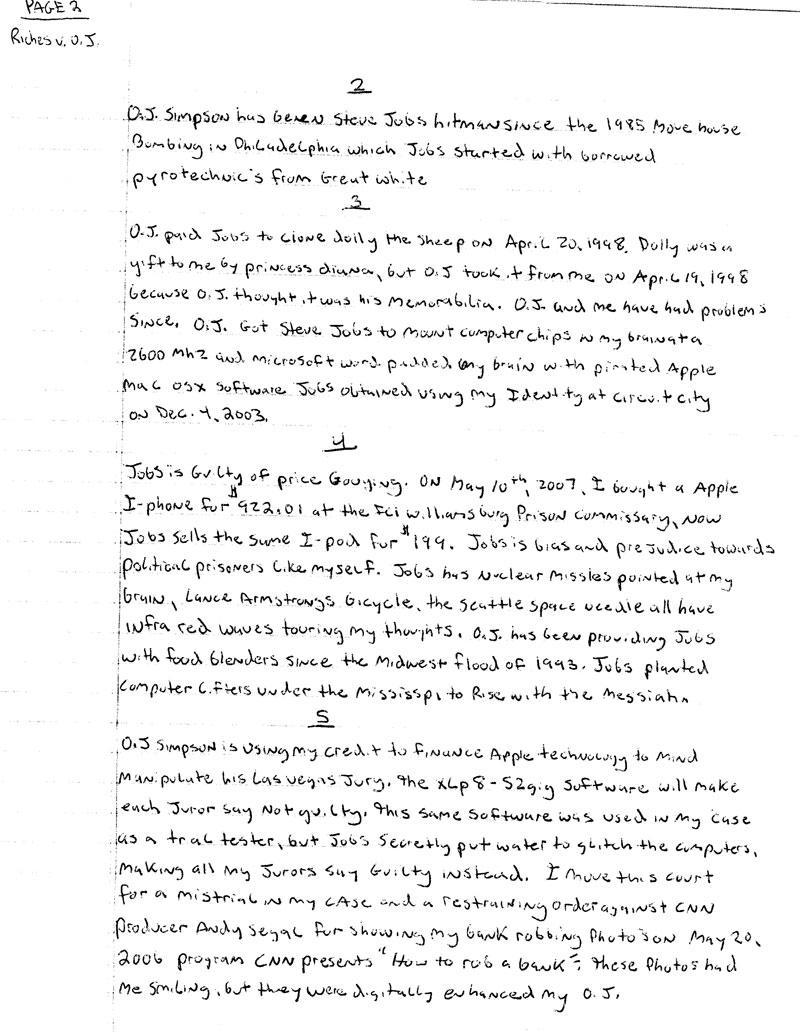 PAGE 2
Riches v. O.J.
2
O.J. Simpson has been Steve Jobs hitman since the 1985 Move house
Bombing in Philadelphia which Jobs started with borrowed
pyrotechnic's from Great white
3
O.J. paid Jobs to clone dolly the sheep on April 20, 1998. Dolly was a
gift to me by princess diana, but O.J took it from me on April 19, 1998
because O.J. thought it was his memorabilia. O.J. and me have had problems
since. O.J. Got Steve Jobs to mount computer chips in my brain at a
2600 Mhz and Microsoft word. padded my brain with pirated Apple
Mac osx software Jobs obtained using my Identity at circuit city
on Dec. 4, 2003.
4
Jobs is Guilty of price Gouging. ON May 10th, 2007, I bought a Apple
I-phone for $922.01 at the FCI williamsburg Prison commissary, Now
Jobs sells the same I-pod for $199. Jobs is bias and prejudice towards
political prisoners like myself. Jobs has Nuclear Missles pointed at my
brain, Lance Armstrongs bicycle, the seattle space needle all have
infra red waves touring my thoughts. O.J. has been providing Jobs
with food blenders since the Midwest flood of 1993. Jobs planted
computer lifters under the Mississpi to Rise with the Messiah.
5
O.J Simpson is using my credit to finance Apple technology to Mind
Manipulate his Las vegas Jury. the XLP8-52gig Software will make
each Juror say Not guilty. this same software was used in my case
as a trial tester, but Jobs secretly put water to glitch the computers,
making all my Jurors say Guilty instead. I move this court
for a mistrial in my case and a restraining order against CNN
producer Andy Segal for showing my bank robbing photo's on May 20,
2006 program CNN presents "How to rob a bank". these photos had
me smiling, but they were digitally enhanced my O.J.